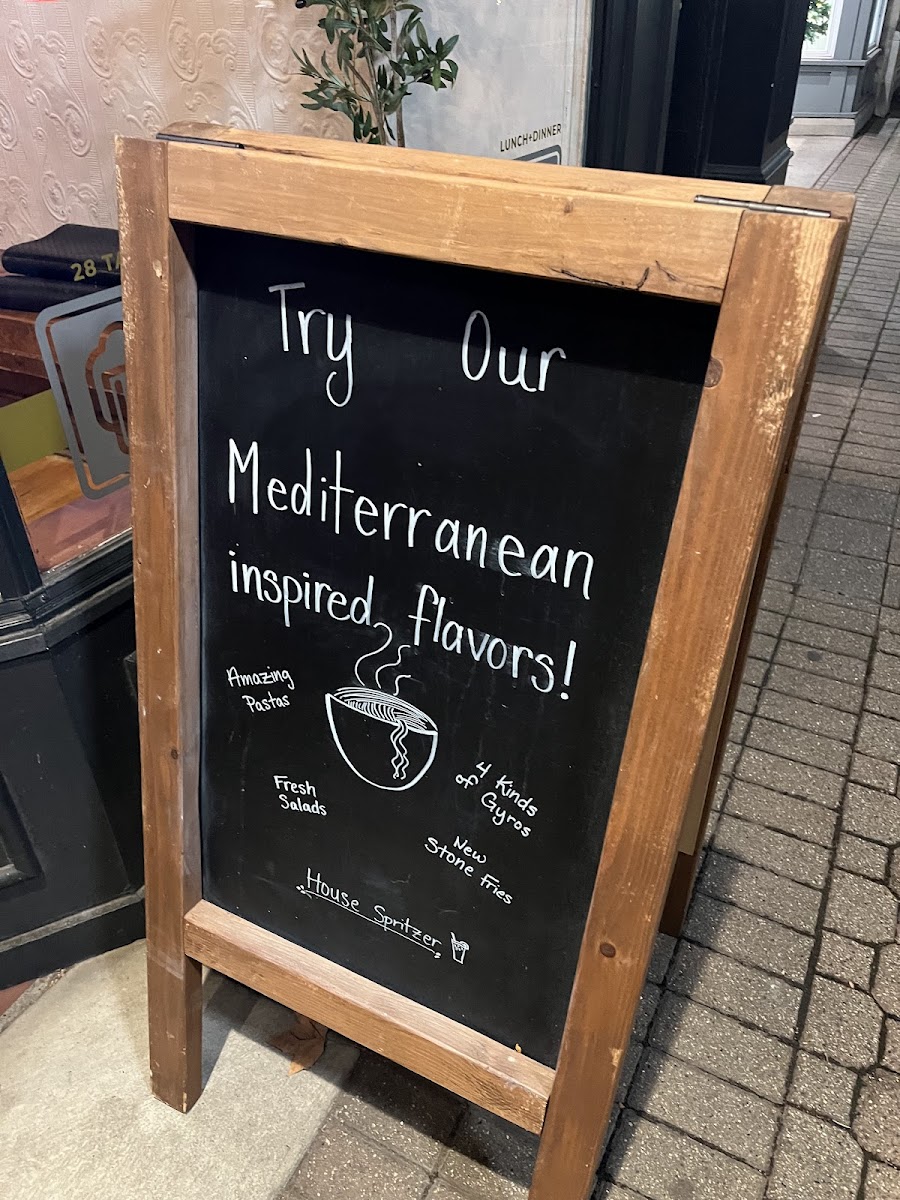 LUNCH+DINNER
28 TA
Try Our
Mediterranean
inspired flavors!
Amazing
Pastas
Fresh
Salads
4 Kinds
of Gyros
New
Stone Fries
House Spritzer